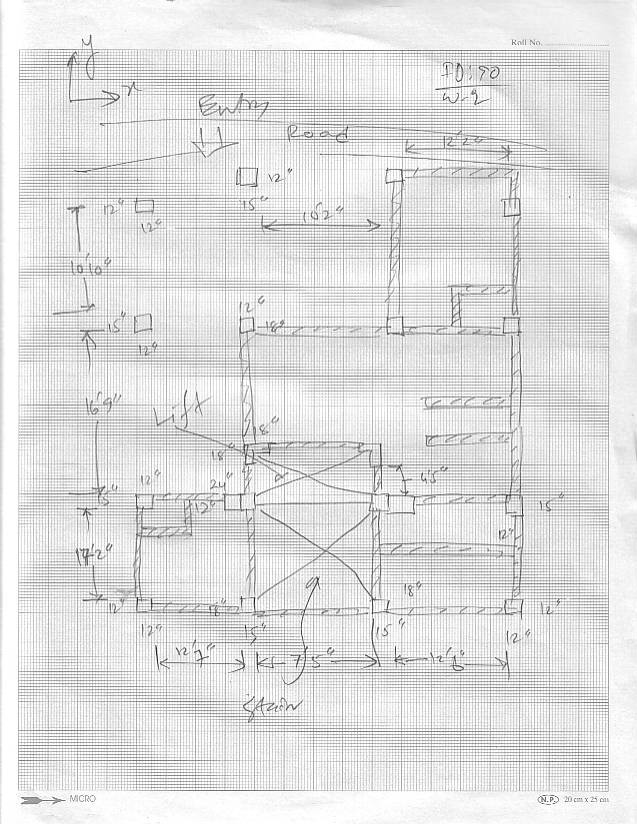 Roll No.
y
x
ID: 90
W-2
Entry
Road
12'2"
12"
15"
10'2"
12"
12"
10'10"
12"
18"
15"
12"
16'9"
Lift
18"
18"
45"
12"
24"
12"
15"
15"
12"
17'2"
12"
18"
18"
12"
12"
15"
15"
12"
12'7"
7'5"
12'6"
Stair
MICRO
N.P. 20 cm x 25 cm